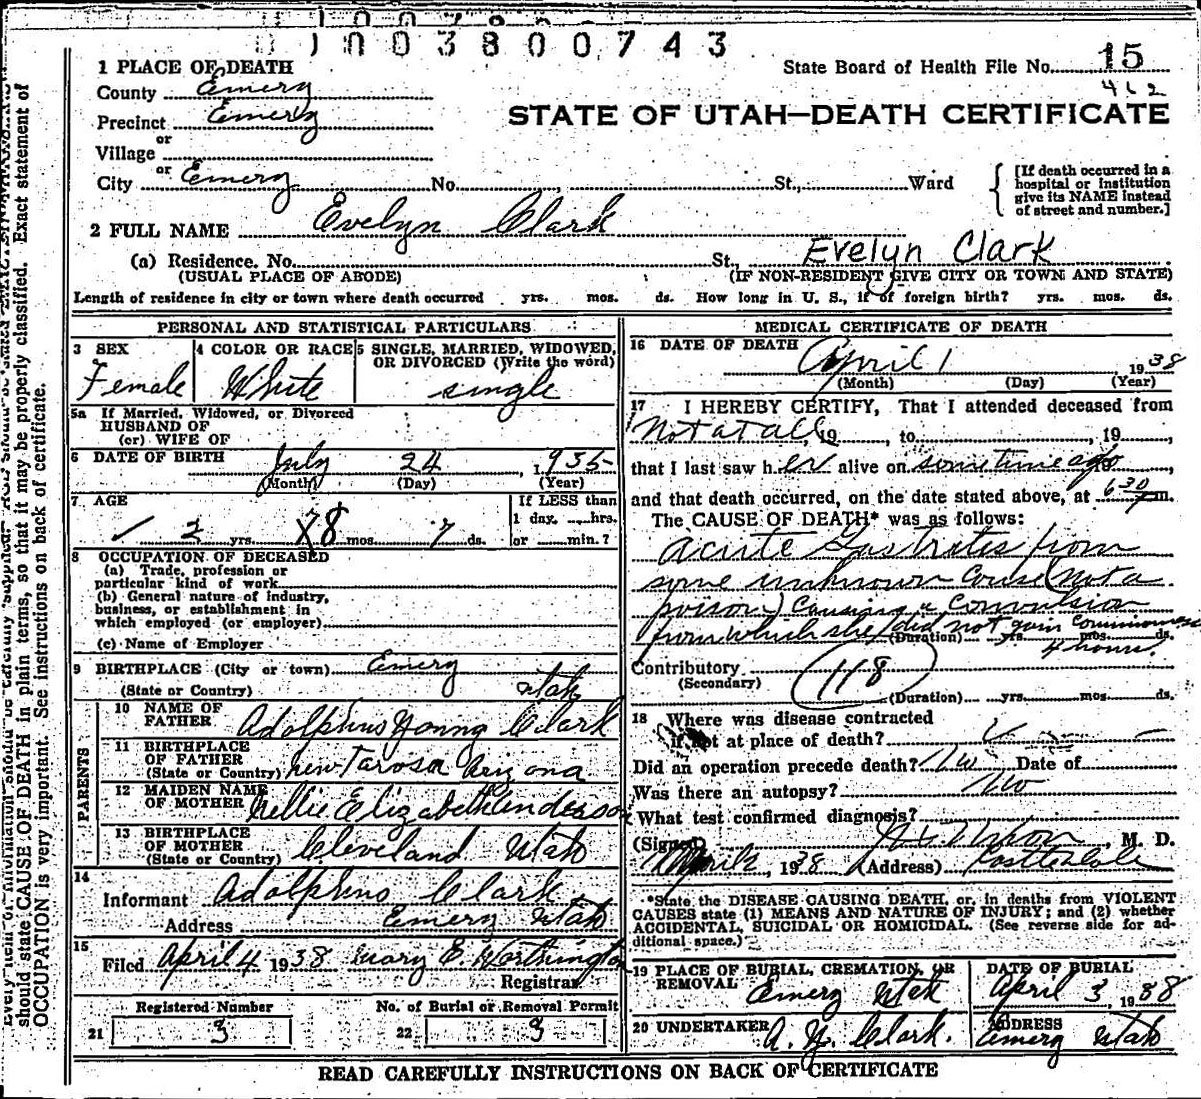 1003800743
State Board of Health File No. 15
462
1 PLACE OF DEATH
County Emery
STATE OF UTAH—DEATH CERTIFICATE
Precinct Emery
or
Village
or
City Emery No. , St., Ward
[If death occurred in a hospital or institution give its NAME instead of street and number.]
2 FULL NAME Evelyn Clark
(a) Residence, No. St., Evelyn Clark
(USUAL PLACE OF ABODE) (IF NON-RESIDENT GIVE CITY OR TOWN AND STATE)
Length of residence in city or town where death occurred yrs. mos. ds. How long in U. S., if of foreign birth? yrs. mos. ds.
PERSONAL AND STATISTICAL PARTICULARS
3 SEX 4 COLOR OR RACE 5 SINGLE, MARRIED, WIDOWED, OR DIVORCED (Write the word)
Female White single
5a If Married, Widowed, or Divorced
HUSBAND OF
(or) WIFE OF
6 DATE OF BIRTH July 24, 1935
(Month) (Day) (Year)
7 AGE If LESS than
2 yrs. 8 mos. 7 ds. 1 day, hrs.
or min.?
8 OCCUPATION OF DECEASED
(a) Trade, profession or
particular kind of work
(b) General nature of industry,
business, or establishment in
which employed (or employer)
(c) Name of Employer
9 BIRTHPLACE (City or town) Emery
(State or Country) Utah
PARENTS
10 NAME OF FATHER Adolphus Young Clark
11 BIRTHPLACE OF FATHER
(State or Country) Arizona
12 MAIDEN NAME OF MOTHER Nellie Elizabeth
13 BIRTHPLACE OF MOTHER
(State or Country) Cleveland Utah
14
Informant Adolphus Clark
Address Emery Utah
15
Filed April 4 1938 Mary E. Worthington
Registrar
Registered Number No. of Burial or Removal Permit
21 3 22 3
MEDICAL CERTIFICATE OF DEATH
16 DATE OF DEATH
April 1 1938
(Month) (Day) (Year)
17 I HEREBY CERTIFY, That I attended deceased from
Not at all 19 , to , 19 ,
that I last saw her alive on sometime ago 19 ,
and that death occurred, on the date stated above, at 6 30 m.
The CAUSE OF DEATH* was as follows:
Acute Gastrites from
some unknown cause (not a
poison) causing a convulsion
from which she did not gain
(Duration) yrs. mos. ds.
4 hours.
Contributory 118
(Secondary)
(Duration) yrs. mos. ds.
18 Where was disease contracted
if not at place of death?
Did an operation precede death? No Date of
Was there an autopsy? No
What test confirmed diagnosis?
(Signed) , M. D.
April 2, 1938 (Address) Castle Dale
*State the DISEASE CAUSING DEATH, or, in deaths from VIOLENT
CAUSES state (1) MEANS AND NATURE OF INJURY; and (2) whether
ACCIDENTAL, SUICIDAL OR HOMICIDAL. (See reverse side for additional space.)
19 PLACE OF BURIAL, CREMATION, OR REMOVAL DATE OF BURIAL
Emery Utah April 3, 1938
20 UNDERTAKER ADDRESS
A. Y. Clark. Emery Utah
READ CAREFULLY INSTRUCTIONS ON BACK OF CERTIFICATE
should state CAUSE OF DEATH in plain terms, so that it may be properly classified. Exact statement of
OCCUPATION is very important. See instructions on back of certificate.